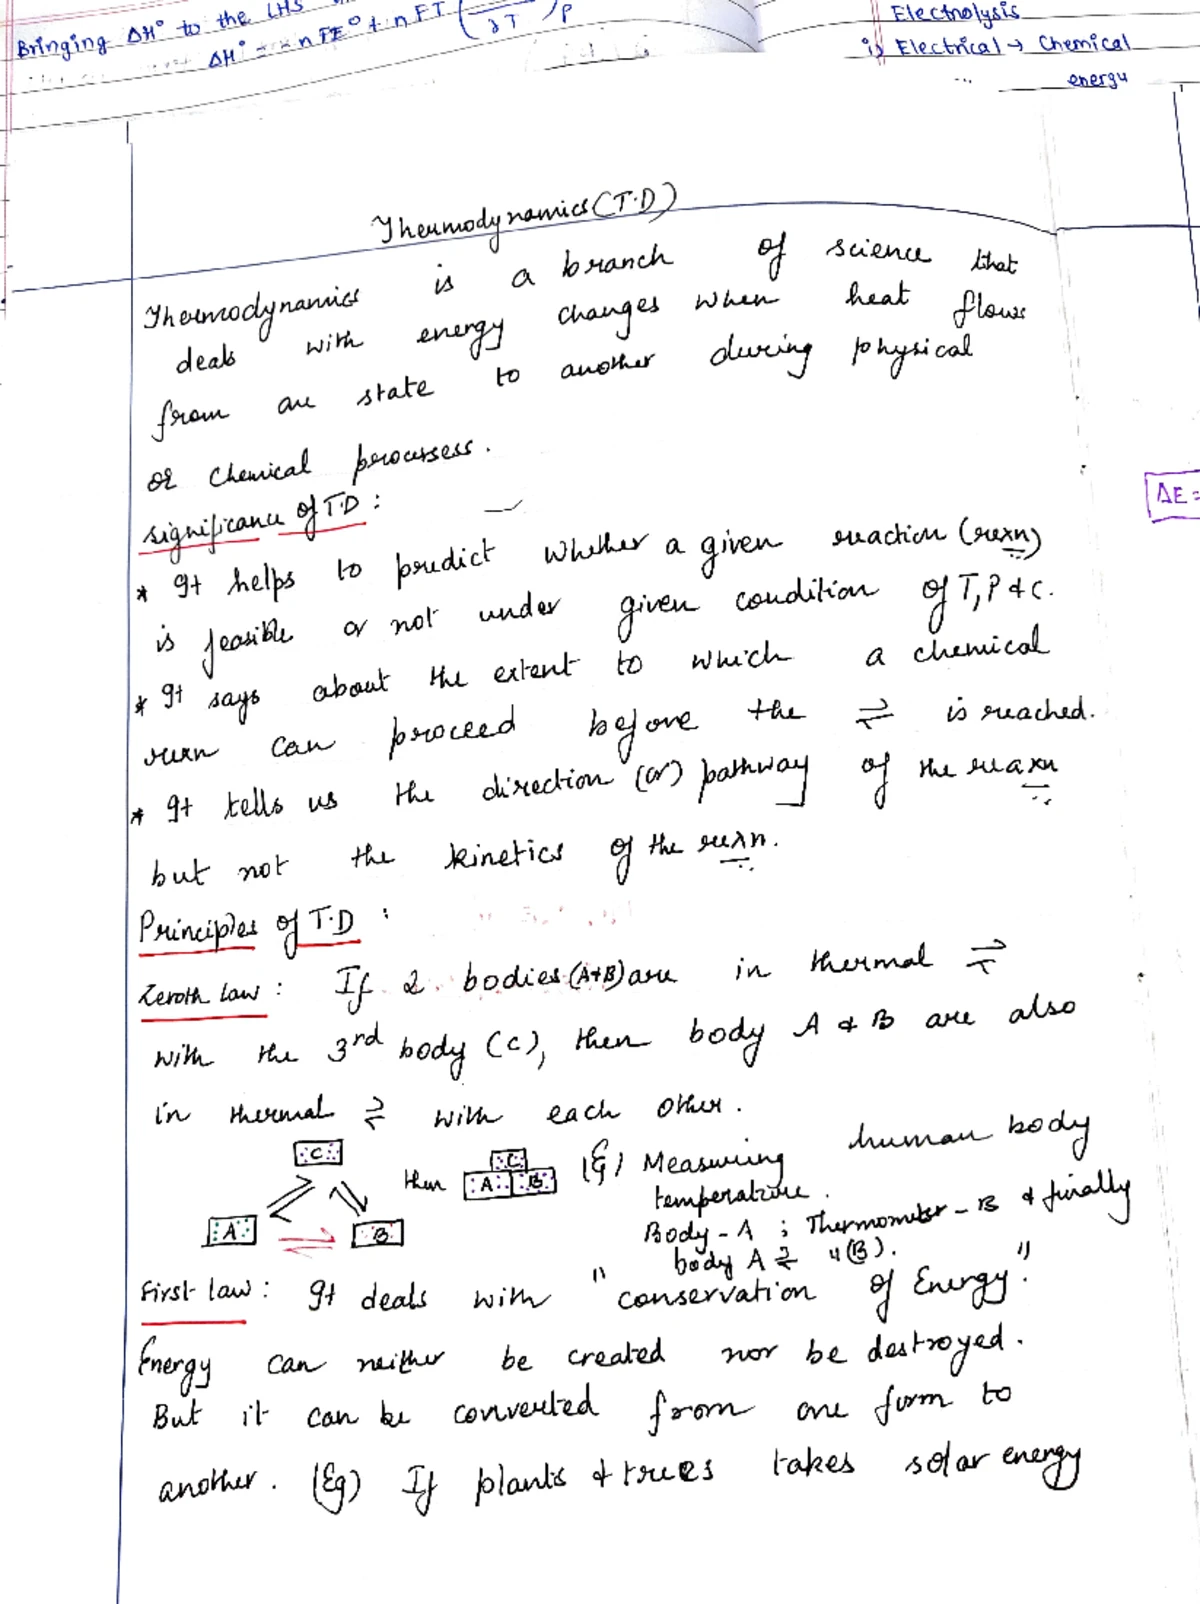 Bringing ΔH° to the LHS
ΔH° = - nFE° + nFT ( / ∂T )P
Electrolysis
i) Electrical → Chemical
energy
Thermodynamics (T.D)
Thermodynamics is a branch of science that
deals with energy changes when heat flows
from one state to another during physical
or chemical processess.
Significance of T.D :
* It helps to predict whether a given reaction (rexn)
is feasible or not under given condition of T, P & C.
* It says about the extent to which a chemical
rexn can proceed before the ⇌ is reached.
* It tells us the direction (or) pathway of the reaxn
but not the kinetics of the rexn.
Principles of T.D :
Zeroth law : If 2 bodies (A+B) are in thermal ⇌
with the 3rd body (C), then body A & B are also
in thermal ⇌ with each other.
C
A
B
then
C
A B
(Eg) Measuring human body
temperature.
Body - A ; Thermometer - B & finally
body A ⇌ "(B).
First law : It deals with "conservation of Energy".
Energy can neither be created nor be destroyed.
But it can be converted from one form to
another. (Eg) If plants & trees takes solar energy
ΔE =